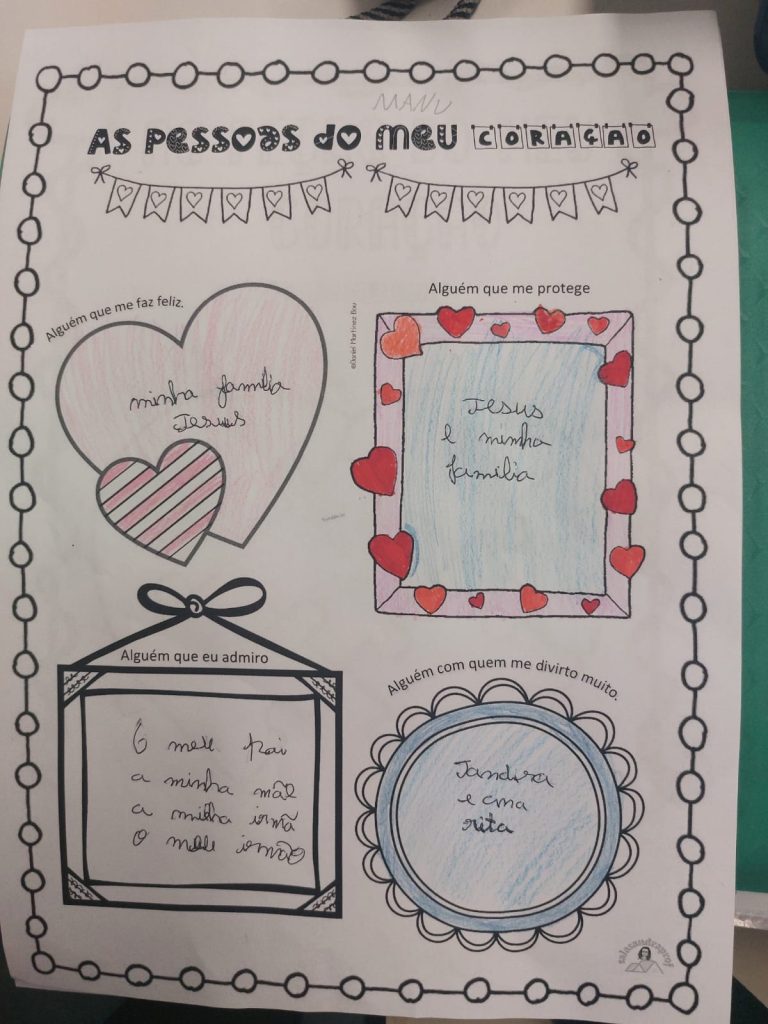 MANU
AS PESSOAS DO MEU CORAÇAO
Alguém que me faz feliz.
minha familia
Jesus
Alguém que me protege
©Daniel Martinez Bou
Jesus
e minha
familia
Alguém que eu admiro
O meu pai
a minha mãe
a minha irmã
O meu irmão
Alguém com quem me divirto muito.
Jandira
e ana
rita
salasandraprof